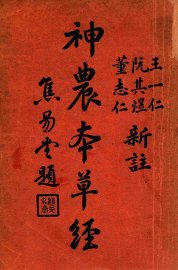 王一仁
阮其煜
董志仁
新註
神農本草經
焦易堂題